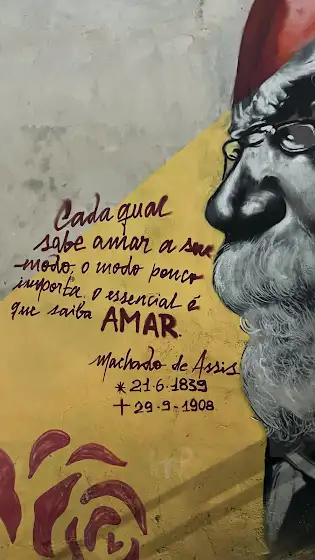 Cada qual
sabe amar a seu
modo, o modo pouco
importa, o essencial é
que saiba AMAR.
Machado de Assis
* 21.6.1839
+ 29.9.1908